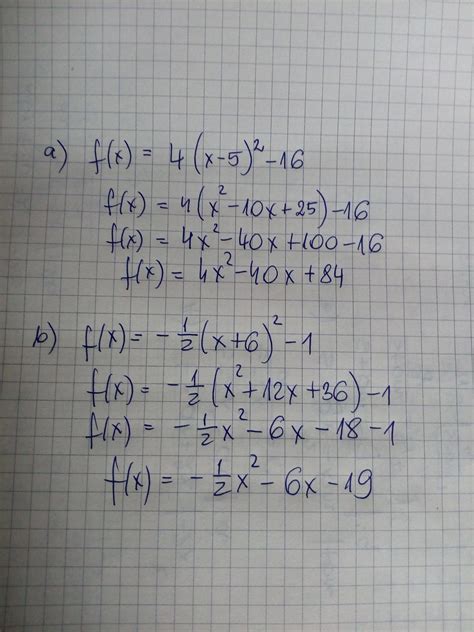 a) f(x) = 4(x-5)²-16
f(x) = 4(x²-10x+25)-16
f(x) = 4x²-40x+100-16
f(x) = 4x²-40x+84
b) f(x) = -1/2(x+6)²-1
f(x) = -1/2(x²+12x+36)-1
f(x) = -1/2x²-6x-18-1
f(x) = -1/2x²-6x-19